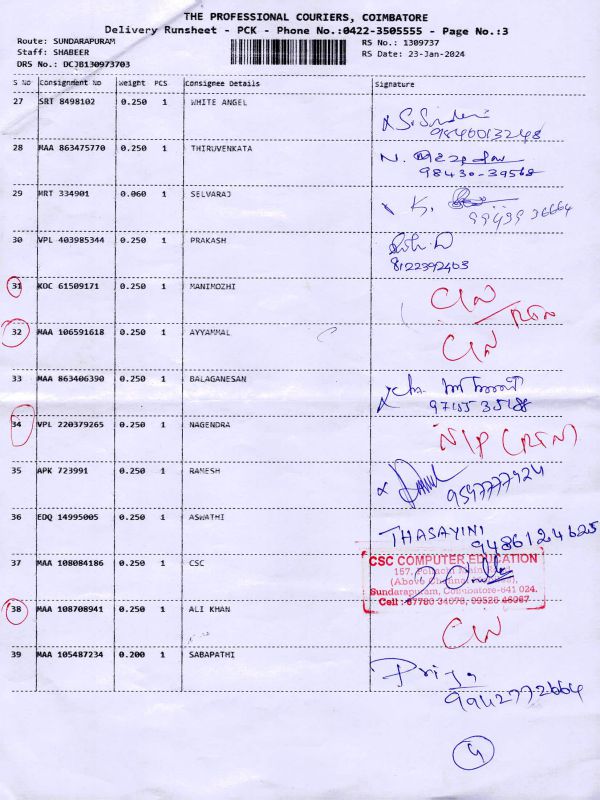 THE PROFESSIONAL COURIERS, COIMBATORE
Delivery Runsheet - PCK - Phone No.:0422-3505555 - Page No.:3
Route: SUNDARAPURAM RS No.: 1309737
Staff: SHABEER RS Date: 23-Jan-2024
DRS No.: DCJB130973703
S No Consignment No Weight PCS Consignee Details Signature
27 SRT 8498102 0.250 1 WHITE ANGEL
9846013248
28 MAA 863475770 0.250 1 THIRUVENKATA
N.
98430-39568
29 MRT 334901 0.060 1 SELVARAJ K.
30 VPL 403985344 0.250 1 PRAKASH
8122392463
31 KOC 61509171 0.250 1 MANIMOZHI C/N
/RTN
32 MAA 106591618 0.250 1 AYYAMMAL C/N
33 MAA 863406390 0.250 1 BALAGANESAN
34 VPL 220379265 0.250 1 NAGENDRA N/P (RTN)
35 APK 723991 0.250 1 RAMESH
9597777924
36 EDQ 14995005 0.250 1 ASWATHI THASAYINI
9486124625
37 MAA 108084186 0.250 1 CSC CSC COMPUTER EDUCATION
157, Pollachi Main
(Above
Sundarapuram, Coimbatore-641 024.
Cell : 87780 34078, 99526 46067
38 MAA 108708941 0.250 1 ALI KHAN C/N
39 MAA 105487234 0.200 1 SABAPATHI Priya
9942772664
9